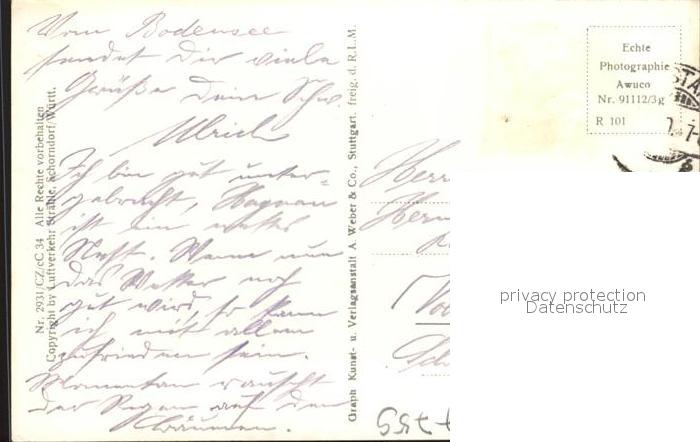 Vom Bodensee
sendet Dir viele
Grüße Dein Schw.
Ulrich
Ich bin gut unter-
gebracht, Hagnau
ist ein nettes
Nest. Wenn nun
das Wetter noch
gut wird, so kann
ich mit allem
zufrieden sein.
Momentan rauscht
der Regen auf den
Bäumen.
Nr. 2931/CZ/cC 34 Alle Rechte vorbehalten
Copyright by Luftverkehr Strähle, Schorndorf/Württ.
Graph Kunst- u. Verlagsanstalt A. Weber & Co., Stuttgart. freig. d. R.L.M.
Echte
Photographie
Awuco
Nr. 91112/3g
R 101
Herr
privacy protection
Datenschutz